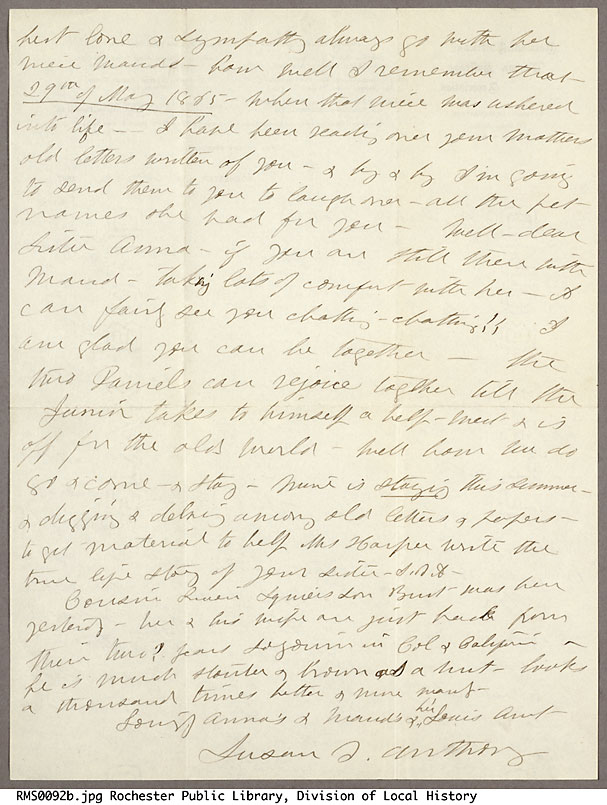 best love & sympathy always go with her
niece Maude - how well I remember that
29th of May 1865 - when that niece was ushered
into life - I have been reading over your mothers
old letters written of you - & by & by I'm going
to send them to you to laugh over - all the pet
names she had for you - Well - dear
Sister Anna - if you are still there with
Maud - taking lots of comfort with her - &
can fairly see you chatting - chatting!! I
am glad you can be together - the
two Daniels can rejoice together till the
Junior takes to himself a help-meet & is
off for the old world - well how we do
go & come - & stay - mine is staying this summer -
& digging & delving among old letters & papers -
to get material to help Mrs Harper write the
true life story of your sister - S.B.A -
Cousin Burt was here
yesterday - he & his wife are just back from
their two? years sojourn in Col & California
he is much stouter & brown as a nut - looks
a thousand times better & more
Loving Anna's & Maud's & her Louis Aunt
Susan B. Anthony
RMS0092b.jpg Rochester Public Library, Division of Local History